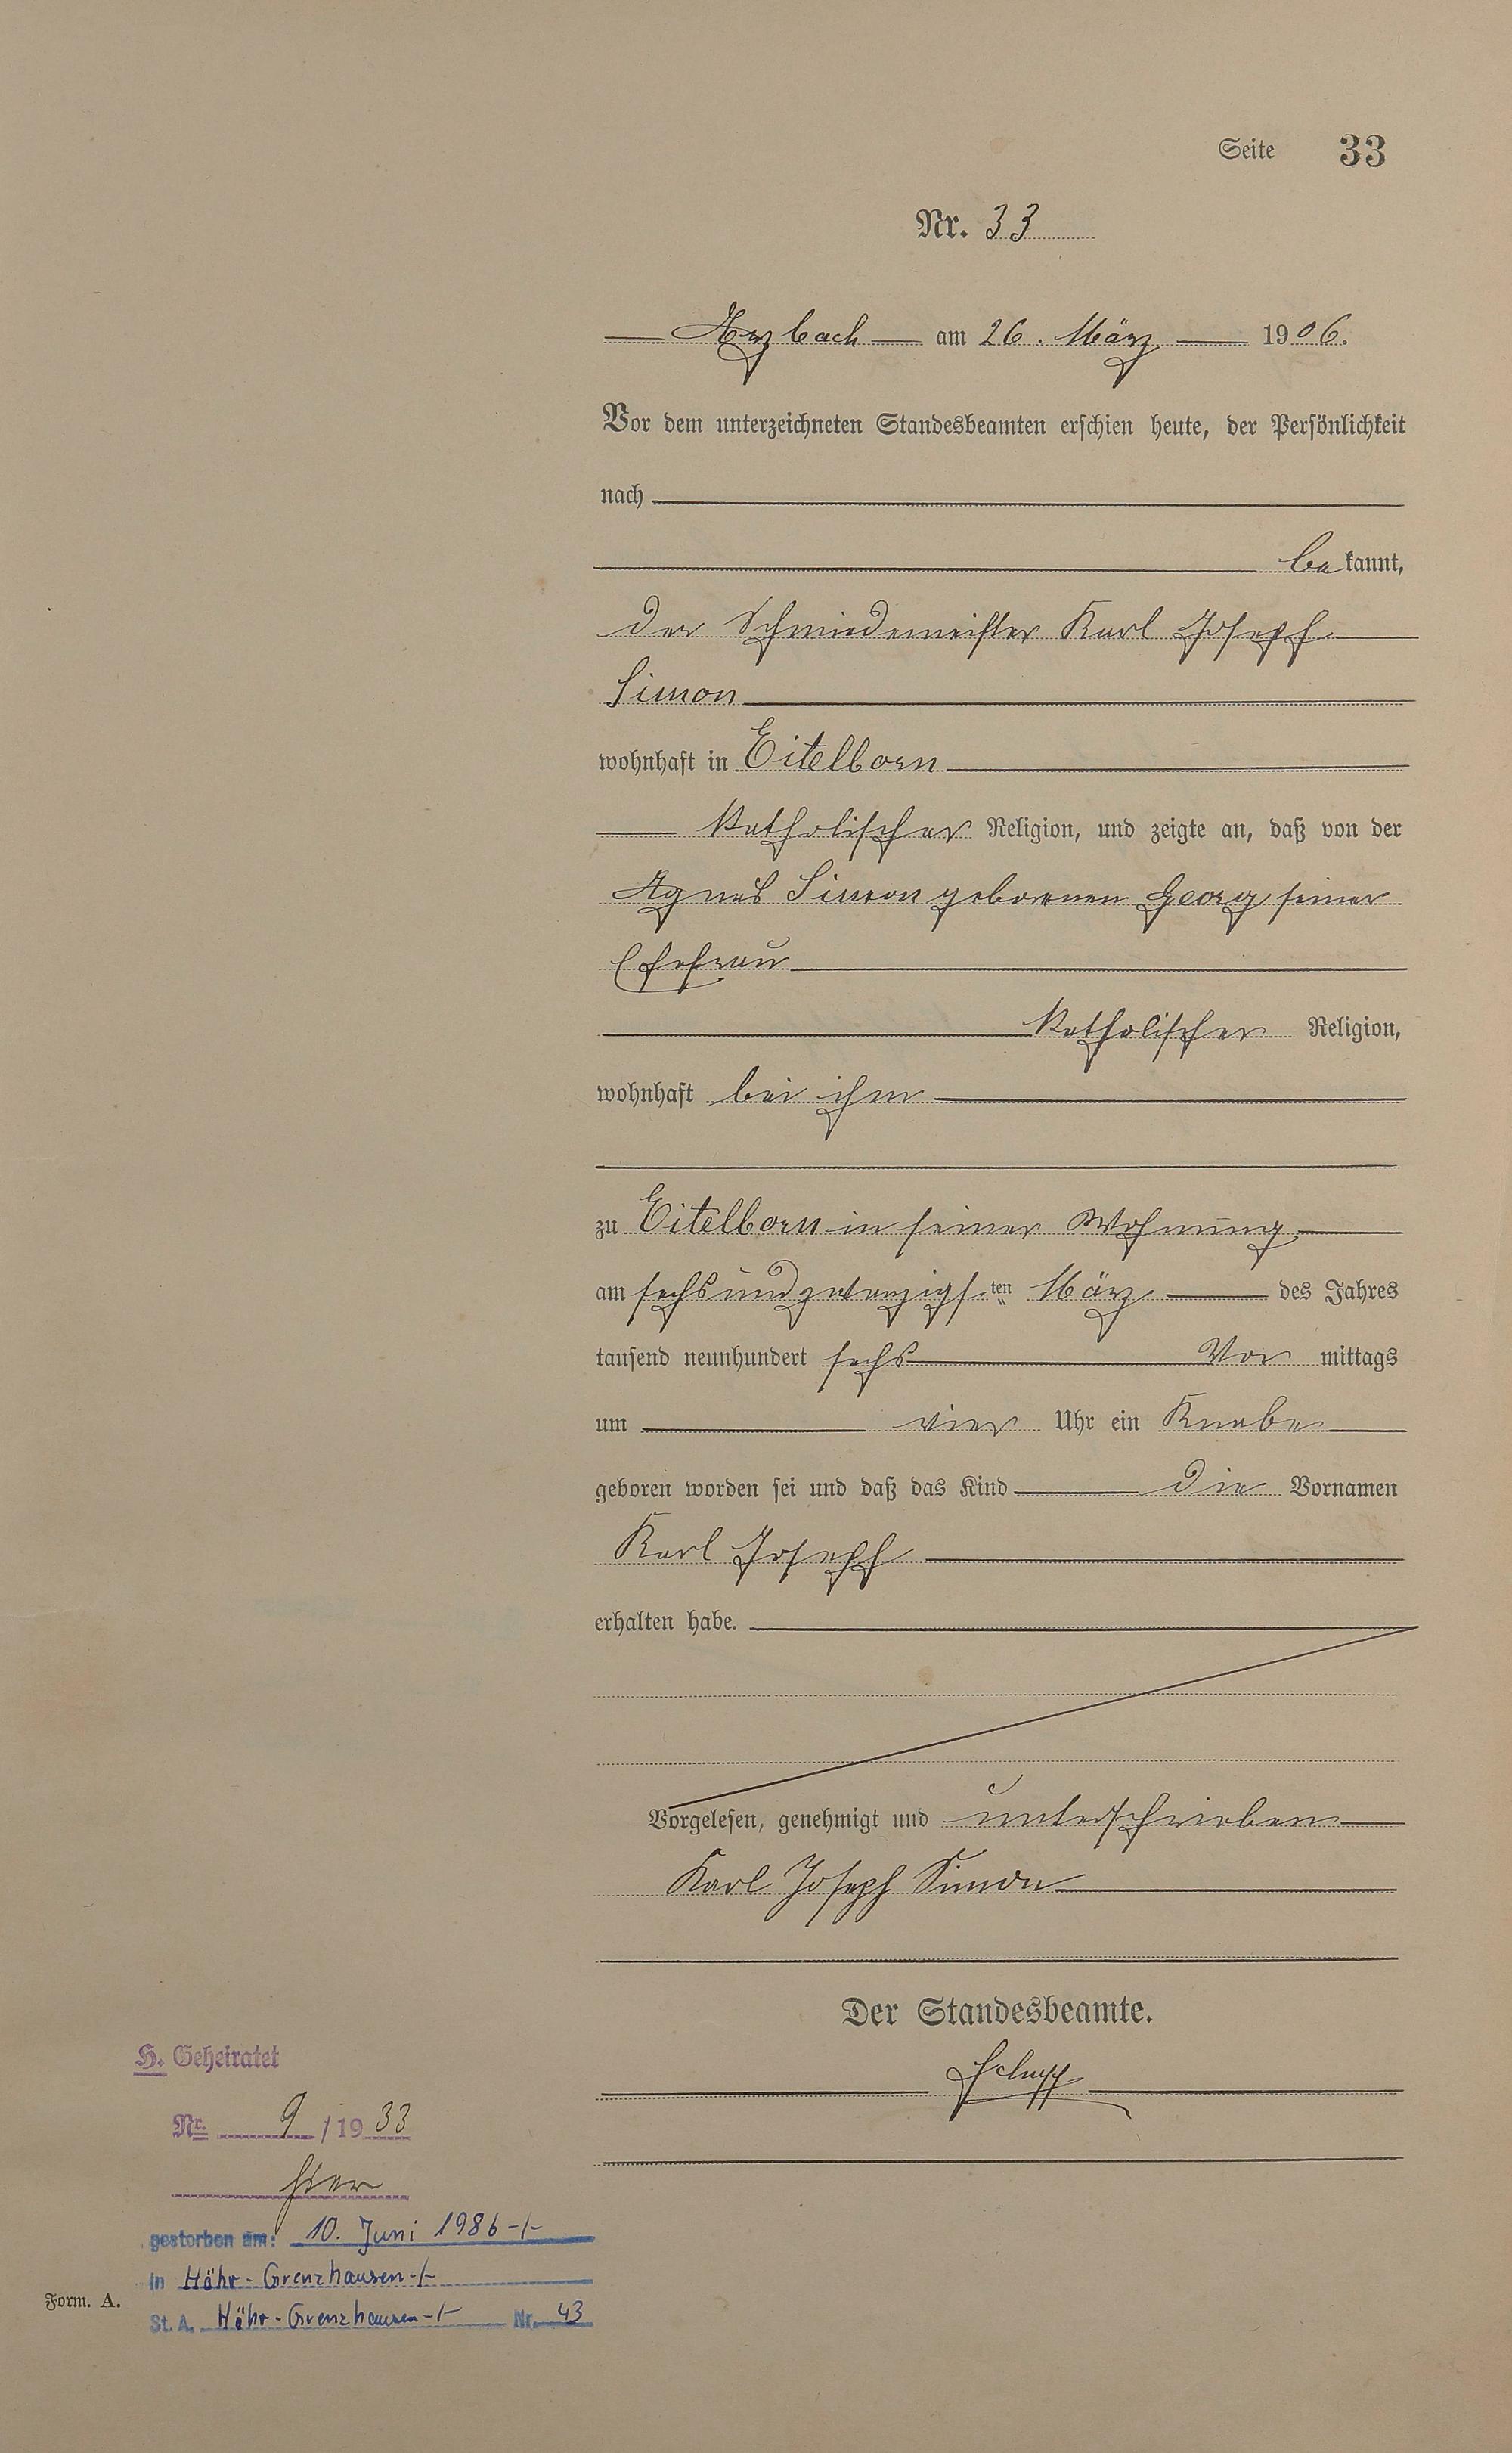 Seite 33
Nr. 33
Arzbach am 26. März 1906.
Vor dem unterzeichneten Standesbeamten erschien heute, der Persönlichkeit
nach
bekannt,
der Schmiedemeister Karl Joseph
Simon
wohnhaft in Eitelborn
katholischer Religion, und zeigte an, daß von der
Agnes Simon geborenen Georg seiner
Ehefrau
katholischer Religion,
wohnhaft bei ihm
zu Eitelborn in seiner Wohnung
am sechsundzwanzigsten März des Jahres
tausend neunhundert sechs Vor mittags
um vier Uhr ein Knabe
geboren worden sei und daß das Kind die Vornamen
Karl Joseph
erhalten habe.
Vorgelesen, genehmigt und unterschrieben
Karl Joseph Simon
Der Standesbeamte.
Schupp
H. Geheiratet
Nr. 9 / 1933
hier
gestorben am: 10. Juni 1986 -/-
in Höhr-Grenzhausen -/-
St. A. Höhr-Grenzhausen -/- Nr. 43
Form. A.